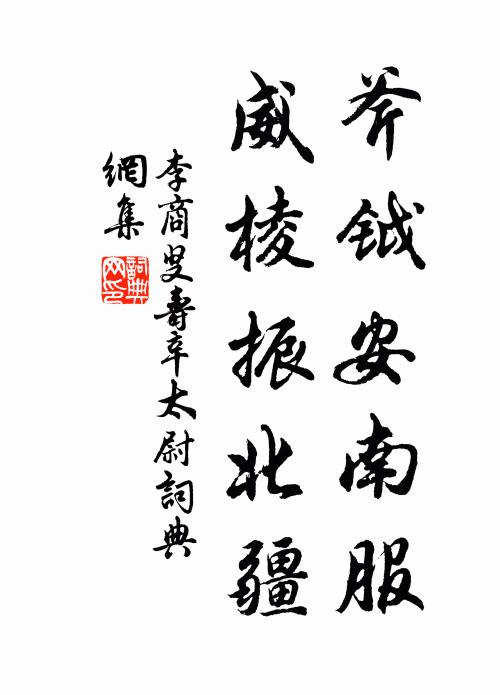 斧鉞安南服
威棱振北疆
李商叟壽辛太尉詞典
網集
詞典網印